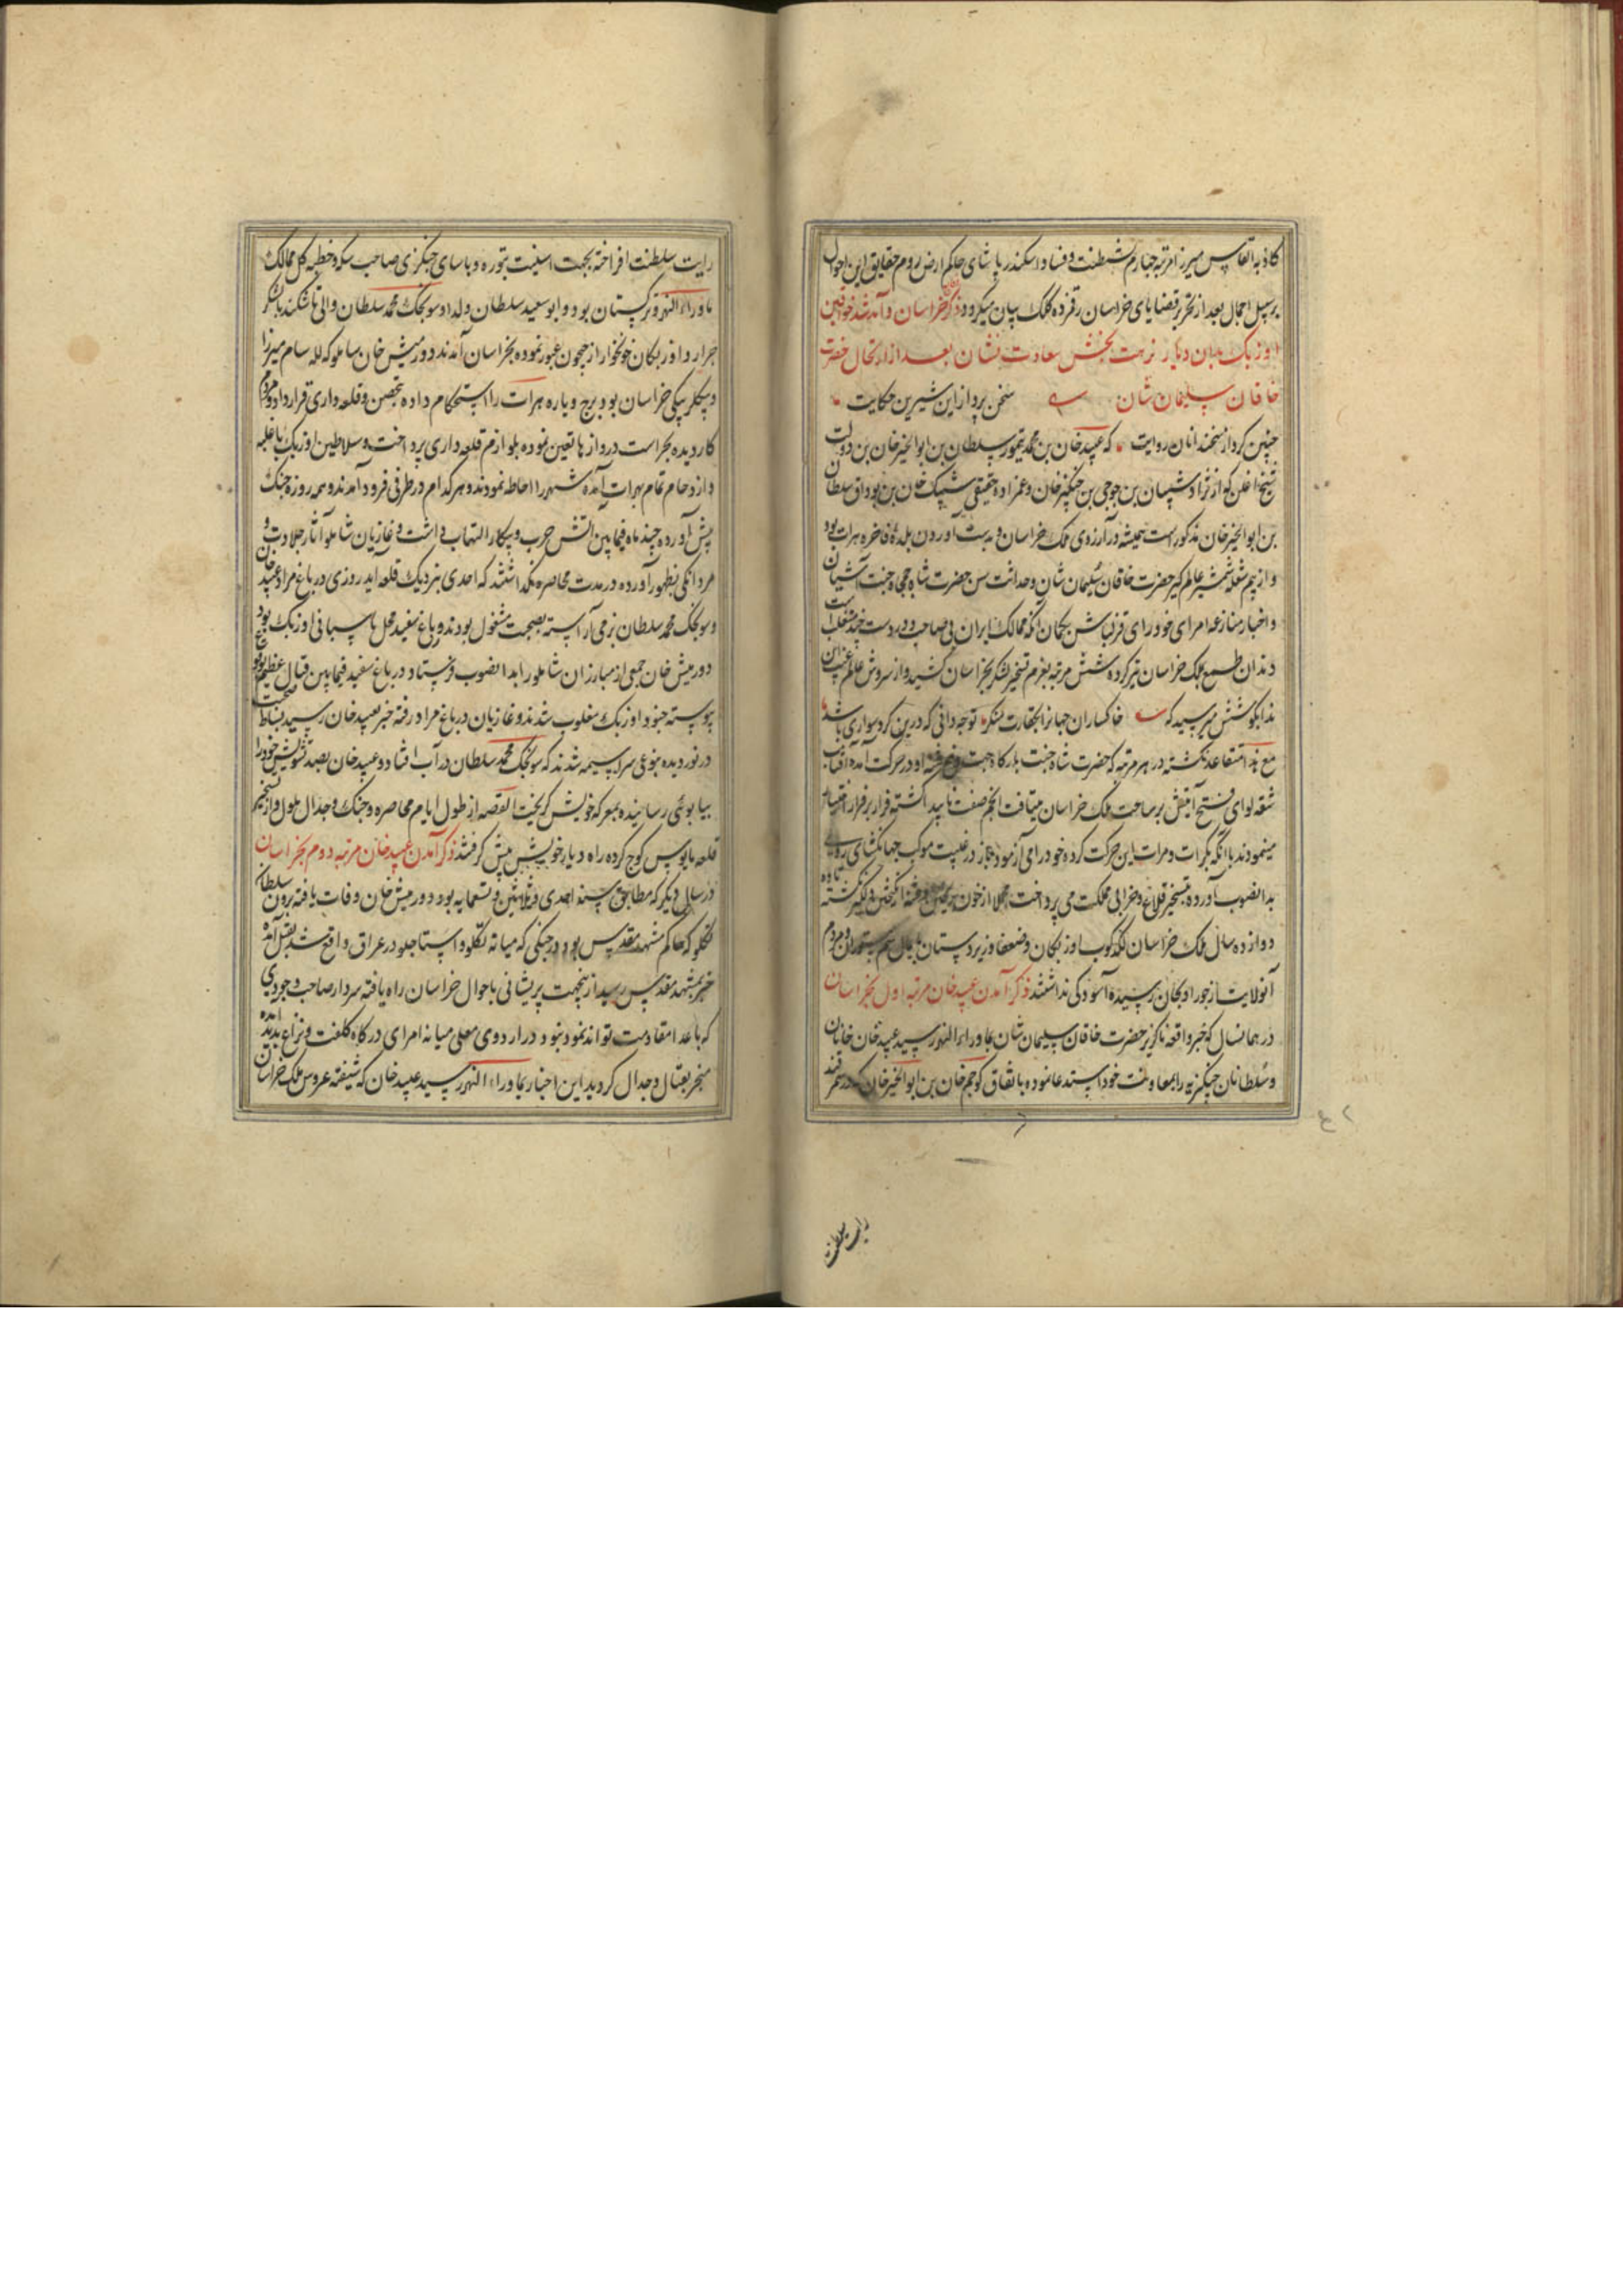 کاذبه القاس میرزا مرتبه چهارم شیطنت و فساد اسکندر پاشای حاکم ارض روم حقایق این احوال
بر سبیل اجمال بعد از تحریر قضایای خراسان رقم‌زده کلک بیان میگردد ذکر خراسان و آمد شد خواقین
اوزبک بدان دیار نزهت بخش سعادت نشان بعد از ارتحال حضرت
خاقان سلیمان شان سخن پرداز این شیرین حکایت
چنین کرد از سخندانان روایت که عبید خان بن محمد تیمور سلطان بن ابوالخیر خان بن دولت
شیخ اغلن که از نژاد شیبان بن جوجی بن چنگیز خان و عمزاده حقیقی شیبک خان بن بوداق سلطان
بن ابوالخیر خان مذکور است همیشه در آرزوی ملک خراسان و بدست آوردن بلده فاخره هرات بود
و از بیم شعله شمشیر عالمگیر حضرت خاقان سلیمان شان و حداثت سن حضرت شاه جمجاه جنت آشیان
و اخبار منازعه امرای خودرای قزلباش بگمان آنکه ممالک ایران بی صاحب و در دست چند متغلب است
دندان طمع بملک خراسان تیز کرده شش مرتبه بعزم تسخیر لشکر بخراسان کشید و از سروش عالم غیب این
ندا بگوشش میرسید که خاکساران جهانرا بحقارت منگر توچه دانی که درین گرد سواری باشد
مع هذا متقاعد نگشته در هر مرتبه که حضرت شاه جنت بارگاه جهت دفع فتنه او در حرکت آمده آفتاب
شقه لوای فتح آیتش بر ساحت ملک خراسان میتافت انجم صفت ناپیدا گشته فرار بر قرار اختیار
مینمودند با آنکه بکرات و مرات این حرکت کرده خود را می‌آزمود باز در غیبت موکب جهانگشای روی
بدانصوب آورده بتسخیر قلاع و خرابی مملکت می‌پرداخت مجملا از خون‌ریزی و فتنه‌انگیزی دلگیر نگشته تا ده
دوازده سال ملک خراسان لگدکوب اوزبکان و ضعفا و زیردستان پایمال سم ستوران و مردم
آنولایت از جور اوبکان رسیده آسودگی نداشتند ذکر آمدن عبید خان مرتبه اول بخراسان
در همانسال که خبر واقعه ناگزیر حضرت خاقان سلیمان شان بماوراء النهر رسید عبید خان خانان
و سلطانان چنگیزیه را بمعاونت خود استدعا نموده باتفاق کوچم خان بن ابوالخیر خان که در سمرقند
رایت سلطنت
رایت سلطنت افراخته بجهت اسنیت بتوره و یاسای چنگیزی صاحب سکه و خطبه کل ممالک
ماوراء النهر و ترکستان بود و ابو سعید سلطان ولد او سونجک محمد سلطان والی تاشکند با لشکر
جرار و اوزبکان خونخوار از جیحون عبور نموده بخراسان آمدند دورمیش خان شاملو که لله سام میرزا
و بیگلربیگی خراسان بود برج و باره هرات را استحکام داده بتحصن و قلعه‌داری قرار داد و مردم
کاردیده بحراست دروازها تعیین نموده بلوازم قلعه‌داری پرداخت و سلاطین اوزبک با غلبه
و ازدحام تمام بهرات آمده شهر را احاطه نمودند و هر کدام در طرفی فرود آمدند و همه روزه جنگ
پیش آورده چند ماه فیمابین آتش حرب و پیکار التهاب داشت و غازیان شاملو آثار جلادت و
مردانگی بظهور آورده در مدت محاصره نگذاشتند که احدی بنزدیک قلعه آید روزی در باغ مراد عبید خان
و سونجک محمد سلطان بزمی آراسته بصحبت مشغول بودند و باغ سفید محل یاسبانی اوزبک بود
دورمیش خان جمعی از مبارزان شاملو را بدانصوب فرستاد و در باغ سفید فیمابین قتال عظیم بوقوع
پیوسته جنود اوزبک مغلوب شدند و غازیان در باغ مراد رفته خبر بعبید خان رسید بساط صحبت
درنوردیده بنوعی سراسیمه شدند که سونجک محمد سلطان در آب افتاد و عبید خان بصد تشویش خود را
بیابوئی رسانیده بمعرکه خویش گریخت القصه از طول ایام محاصره و جنگ و جدال ملول و از تسخیر
قلعه مایوس کوچ کرده راه دیار خویش پیش گرفتند ذکر آمدن عبید خان مرتبه دوم بخراسان
در سالی دیگر که مطابق سنه احدی و ثلاثین و تسعمایه بود دورمیش خان وفات یافته برون سلطان
تکلو که حاکم مشهد مقدس بود در جنگی که میانه تکلو و استاجلو در عراق واقع شد بقتل آمده
خبر بمشهد مقدس رسید ازینجهت پریشانی باحوال خراسان راه یافته سردار صاحب وجودی
که با اعدا مقاومت تواند نمود نبود و در اردوی معلی میانه امرای درگاه کلفت و نزاع پدید آمده
منجر بقتال و جدال گردید این اخبار بماوراء النهر رسید عبید خان که شیفته عروس ملک خراسان